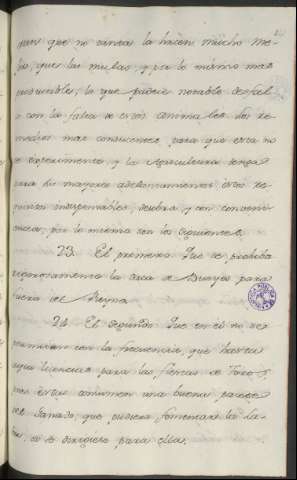 pues que no cansa la hacen mucho me-
jor, que las mulas, y por lo mismo mas
productible, lo que padece notable desfal-
co con la falta de estos animales. Los re-
medios mas conducentes para que esta no
se experimente, y la Agricultura tenga
para su mayor adelantamiento estos re-
cursos indispensables, de obra, y con conveni-
por lo mismo son los siguientes.
23. El primero Que se prohiba
rigorosamente la saca de Bueyes para
fuera del Reyno.
24. El segundo Que en él no se
con la frecuencia, que hasta
aqui licencias para las fiestas de Toros, y
pues estas consumen una buena parte
del Ganado, que pudiera fomentar la la-
si se dirigiese para ella.